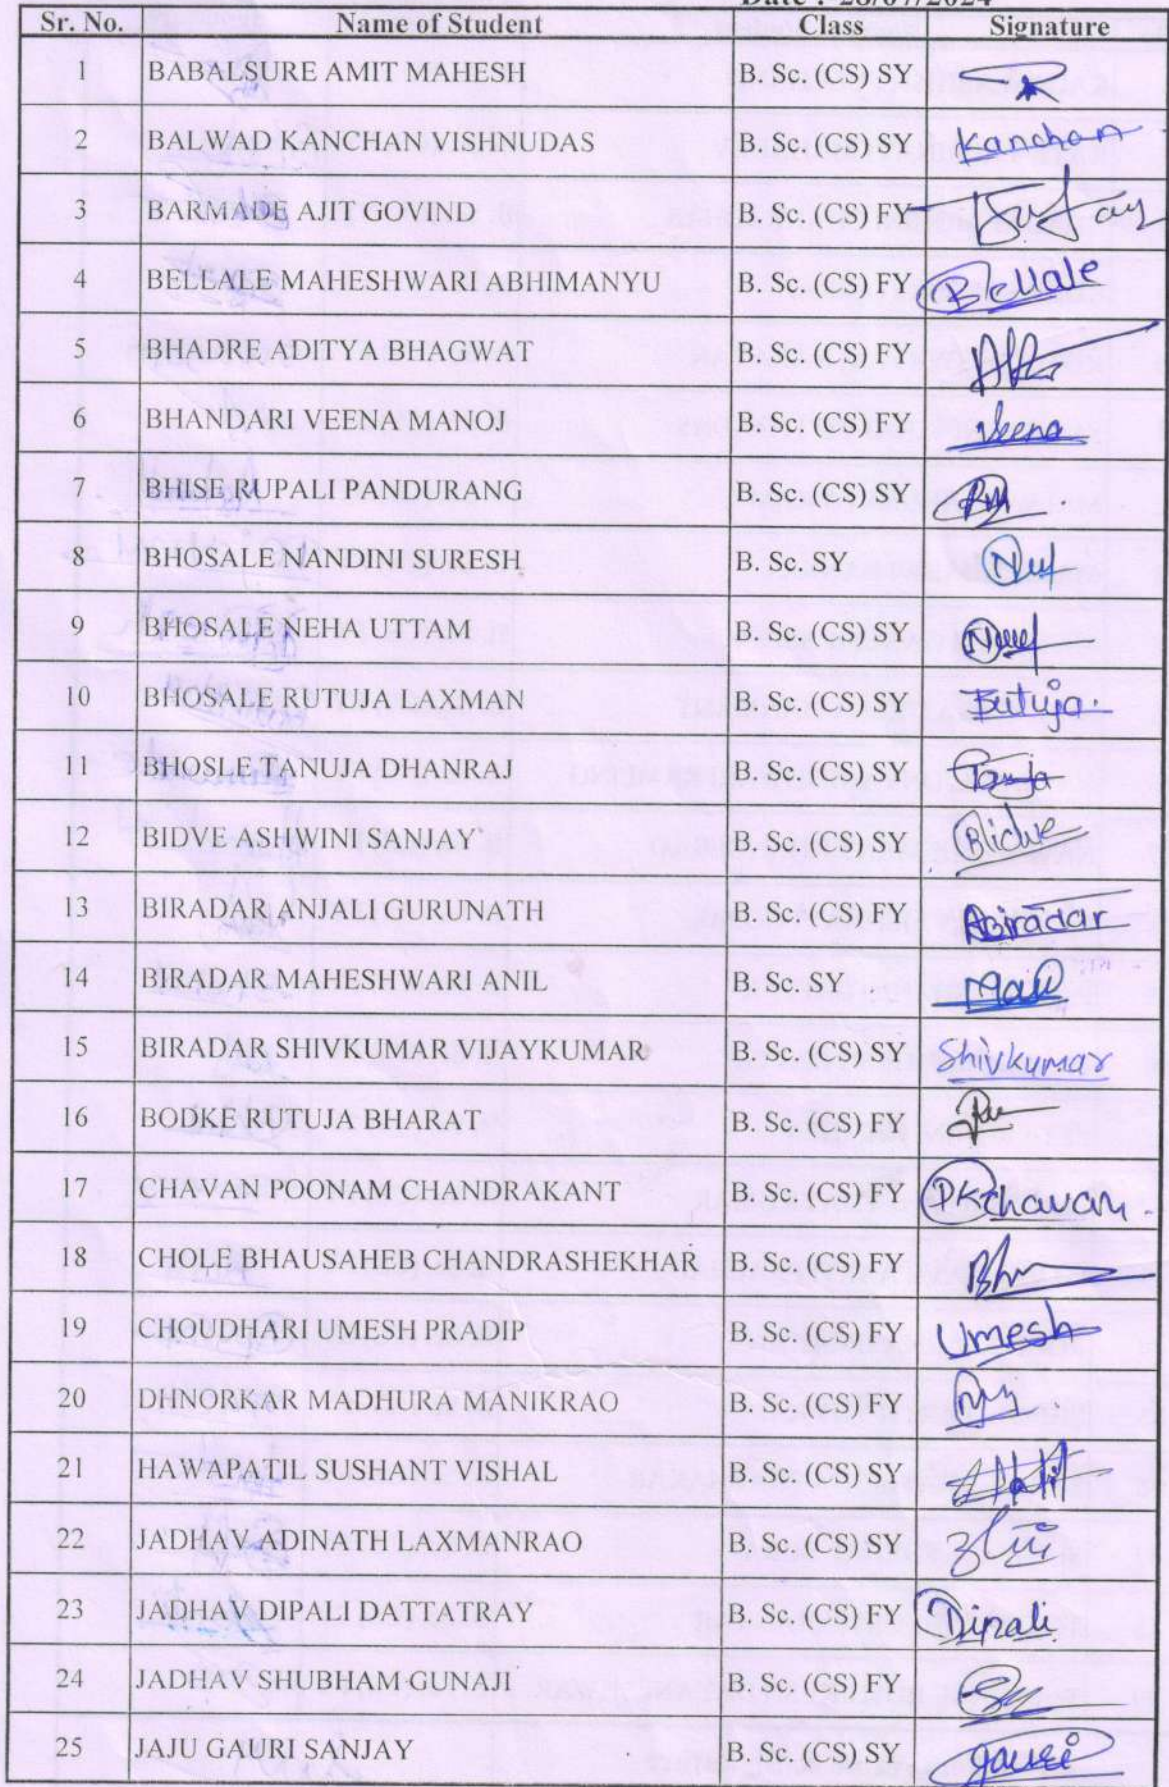 Date : 28/07/2024
Sr. No. Name of Student Class Signature
1 BABALSURE AMIT MAHESH B. Sc. (CS) SY
2 BALWAD KANCHAN VISHNUDAS B. Sc. (CS) SY Kanchan
3 BARMADE AJIT GOVIND B. Sc. (CS) FY
4 BELLALE MAHESHWARI ABHIMANYU B. Sc. (CS) FY Bellale
5 BHADRE ADITYA BHAGWAT B. Sc. (CS) FY
6 BHANDARI VEENA MANOJ B. Sc. (CS) FY Veena
7 BHISE RUPALI PANDURANG B. Sc. (CS) SY
8 BHOSALE NANDINI SURESH B. Sc. SY
9 BHOSALE NEHA UTTAM B. Sc. (CS) SY
10 BHOSALE RUTUJA LAXMAN B. Sc. (CS) SY Rutuja
11 BHOSLE TANUJA DHANRAJ B. Sc. (CS) SY
12 BIDVE ASHWINI SANJAY B. Sc. (CS) SY
13 BIRADAR ANJALI GURUNATH B. Sc. (CS) FY ABiradar
14 BIRADAR MAHESHWARI ANIL B. Sc. SY
15 BIRADAR SHIVKUMAR VIJAYKUMAR B. Sc. (CS) SY Shivkumar
16 BODKE RUTUJA BHARAT B. Sc. (CS) FY
17 CHAVAN POONAM CHANDRAKANT B. Sc. (CS) FY PKchavan
18 CHOLE BHAUSAHEB CHANDRASHEKHAR B. Sc. (CS) FY
19 CHOUDHARI UMESH PRADIP B. Sc. (CS) FY Umesh
20 DHNORKAR MADHURA MANIKRAO B. Sc. (CS) FY
21 HAWAPATIL SUSHANT VISHAL B. Sc. (CS) SY
22 JADHAV ADINATH LAXMANRAO B. Sc. (CS) SY
23 JADHAV DIPALI DATTATRAY B. Sc. (CS) FY Dipali
24 JADHAV SHUBHAM GUNAJI B. Sc. (CS) FY
25 JAJU GAURI SANJAY B. Sc. (CS) SY gauri